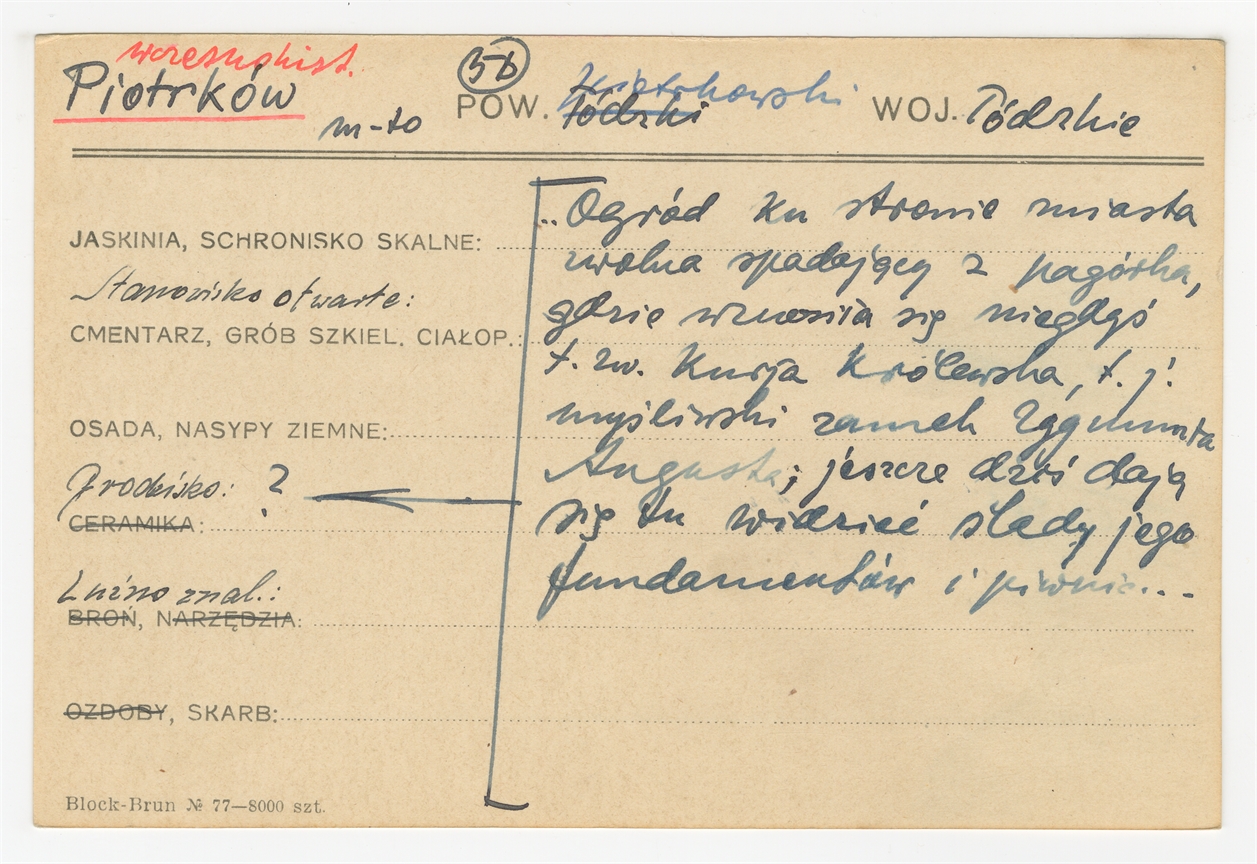 wczesnohist.
Piotrków
m-to
POW. łódzki piotrkowski
WOJ. Łódzkie
JASKINIA, SCHRONISKO SKALNE:
Stanowisko otwarte:
CMENTARZ, GRÓB SZKIEL. CIAŁOP.:
OSADA, NASYPY ZIEMNE:
Grodzisko: ?
CERAMIKA:
Luźno znal.:
BROŃ, NARZĘDZIA:
OZDOBY, SKARB:
Block-Brun № 77—8000 szt.
„Ogród ku stronie miasta
wolna spadający z pagórka,
gdzie wznosiła się niegdyś
t. zw. Kurja Królewska, t. j.
myśliwski zamek Zygmunta
Augusta; jeszcze dziś dają
się tu widzieć ślady jego
fundamentów i piwnic...